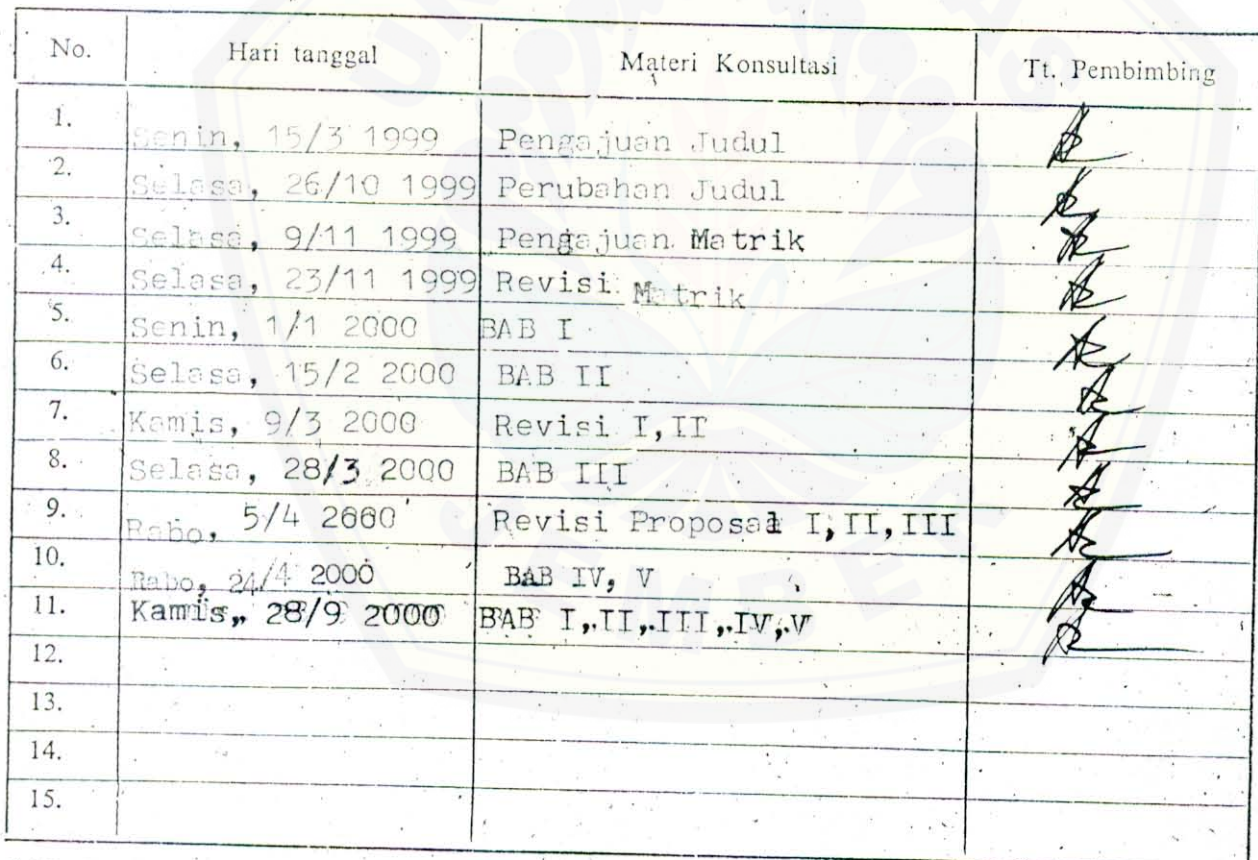 No. Hari tanggal Materi Konsultasi Tt. Pembimbing
1. Senin, 15/3 1999 Pengajuan Judul
2. Selasa, 26/10 1999 Perubahan Judul
3. Selasa, 9/11 1999 Pengajuan Matrik
4. Selasa, 23/11 1999 Revisi Matrik
5. Senin, 1/1 2000 BAB I
6. Selasa, 15/2 2000 BAB II
7. Kamis, 9/3 2000 Revisi I,II
8. Selasa, 28/3 2000 BAB III
9. Rabo, 5/4 2000 Revisi Proposal I,II,III
10. Rabo, 24/4 2000 BAB IV, V
11. Kamis, 28/9 2000 BAB I,II,III,IV,V
12.
13.
14.
15.